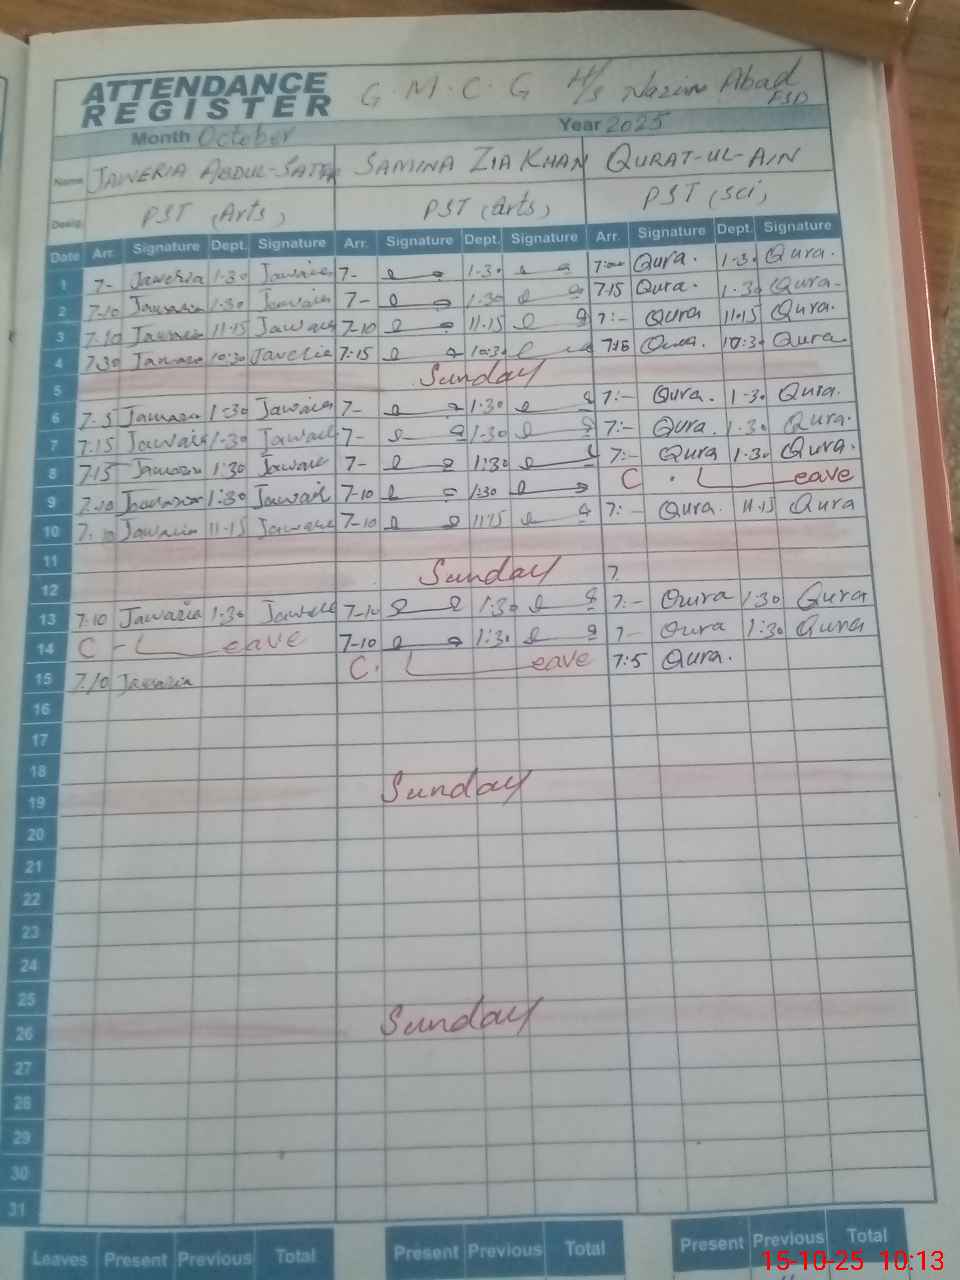 ATTENDANCE
REGISTER
G.M.C.G H/S Nazim Abad
FSD
Month October Year 2025
Name JAWERIA ABDUL-SATTAR SAMINA ZIA KHAN QURAT-UL-AIN
Desig. PST (Arts) PST (Arts) PST (Sci)
Date Arr. Signature Dept. Signature Arr. Signature Dept. Signature Arr. Signature Dept. Signature
1 7- Jaweria 1-30 7- 1-30 7:00 Qura. 1-30 Qura.
2 7-10 1-30 7- 1-30 7-15 Qura. 1-30 Qura.
3 7-10 11-15 7-10 11-15 7:- Qura 11-15 Qura.
4 7-30 10:30 Javeria 7-15 10:30 7:15 Qura. 10:30 Qura
5 Sunday
6 7-5 1-30 7- 1-30 7:- Qura. 1-30 Qura.
7 7:15 1-30 7- 1-30 7:- Qura. 1-30 Qura.
8 7-15 1:30 7- 1:30 7:- Qura 1-30 Qura.
9 7-10 1:30 7-10 1:30 C. Leave
10 7-10 11-15 7-10 11-15 7:- Qura. 11-15 Qura
11
12 Sunday 7
13 7-10 Jawaria 1:30 7-10 1:30 7:- Qura 1:30 Qura
14 C - Leave 7-10 1:30 7- Qura 1:30 Qura
15 7-10 C. Leave 7:5 Qura.
16
17
18
19 Sunday
20
21
22
23
24
25
26 Sunday
27
28
29
30
31
Leaves Present Previous Total Present Previous Total Present Previous Total
15-10-25 10:13